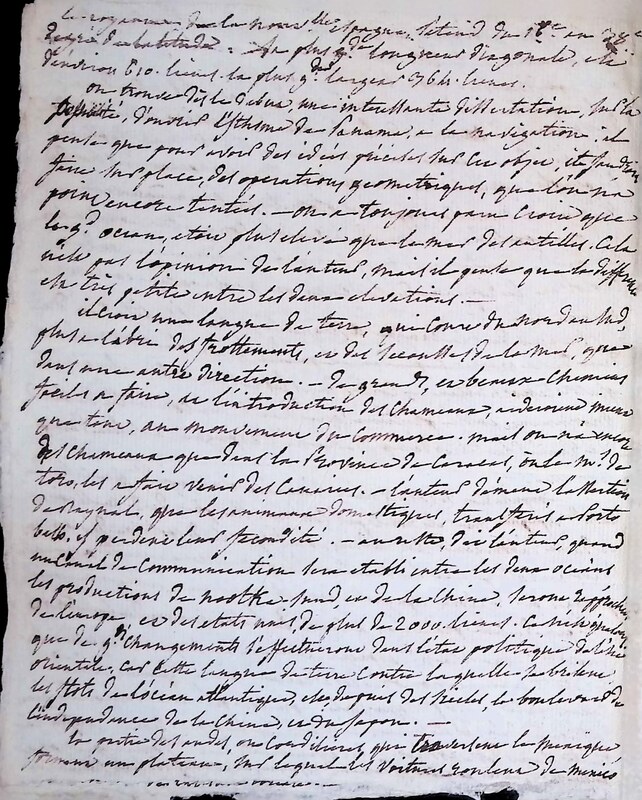 le royaume de la nouvlle Espagne, s'etend du 16e au 38e
degré de latitude. Sa plus gde longueur diagonale, est
d'environ 610. lieues. la plus gde largeur 364. lieues.
on trouve dès le debut, une interessante dissertation, sur la
d'ouvrir l'isthme de Panama, a la navigation. il
pense que pour avoir des idées précises sur cet objet, il faudroit
faire sur place, des operations géometriques, que l'on n'a
point encore tentées. — on a toujours paru croire que
le gd ocean, etoit plus elevé que la mer des antilles. Cela
n'est pas l'opinion de l'auteur, mais il pense que la différence
est très petite entre les deux elevations. —
il croit une langue de terre, qui court du nord au Sud,
plus a l'abri des frottements, et des secousses de la mer, que
dans une autre direction. — de grands, et beaux chemins
facils a faire, et l'introduction des Chameaux, aideroient mieux
que tout, au mouvement du Commerce. mais on n'a encore
des Chameaux que dans la Province de Caracas, où le Mis de
toro, les a fait venir des Canaries. — l'auteur dément l'assertion
de Raynal, que les animaux domestiques, transferés a Porto
bello, y perdent leur fecondité. — au reste, dit l'auteur, quand
un Canal de Communication sera etabli entre les deux océans
les productions de nootka-sund et de la Chine, seront rapprochées
de l'europe, et des etats unis de plus de 2000. lieues.
que de gds changements s'effectueront dans l'état politique de l'asie
orientale, car cette langue de terre contre laquelle se brisent
les flots de l'océan atlantique, est, depuis des siecles, le boulevard de
l'independance de la Chine, et du Japon. —
la partie des andes, ou Cordilieres, qui traversent le mexique
forment un plateau, sur lequel les voitures roulent de mexico